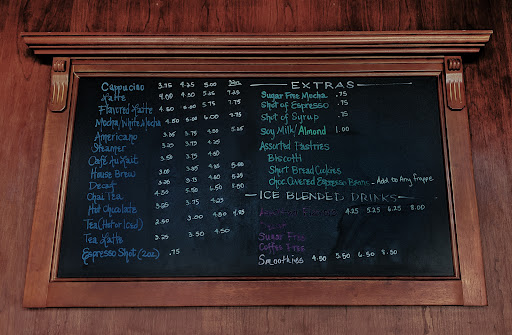 Cappucino 3.75 4.25 5.00
Latte 4.00 4.50 5.25 7.25
Flavored Latte 4.50 5.00 5.75 7.75
Mocha, White Mocha 4.50 5.00 6.00
Americano
Steamer 3.25 3.75 4.00
Café Au Lait 3.50 3.75 4.50
House Brew
Decaf
Chai Tea 4.50 5.50
Hot Chocolate 3.25 3.75 4.25
Tea (Hot or Iced) 2.50 3.00
Tea Latte 3.25 3.50 4.50
Espresso Shot (2oz) .75
EXTRAS
Sugar Free Mocha .75
Shot of Espresso .75
Shot of Syrup .75
Soy Milk/Almond 1.00
Assorted Pastries
Biscotti
Short Bread Cookies
Choc Covered Espresso Beans - Add to Any frappe
ICE BLENDED DRINKS
4.25 5.25 6.25 8.00
Sugar Free
Coffee Free
Smoothies 4.50 5.50 6.50 8.50